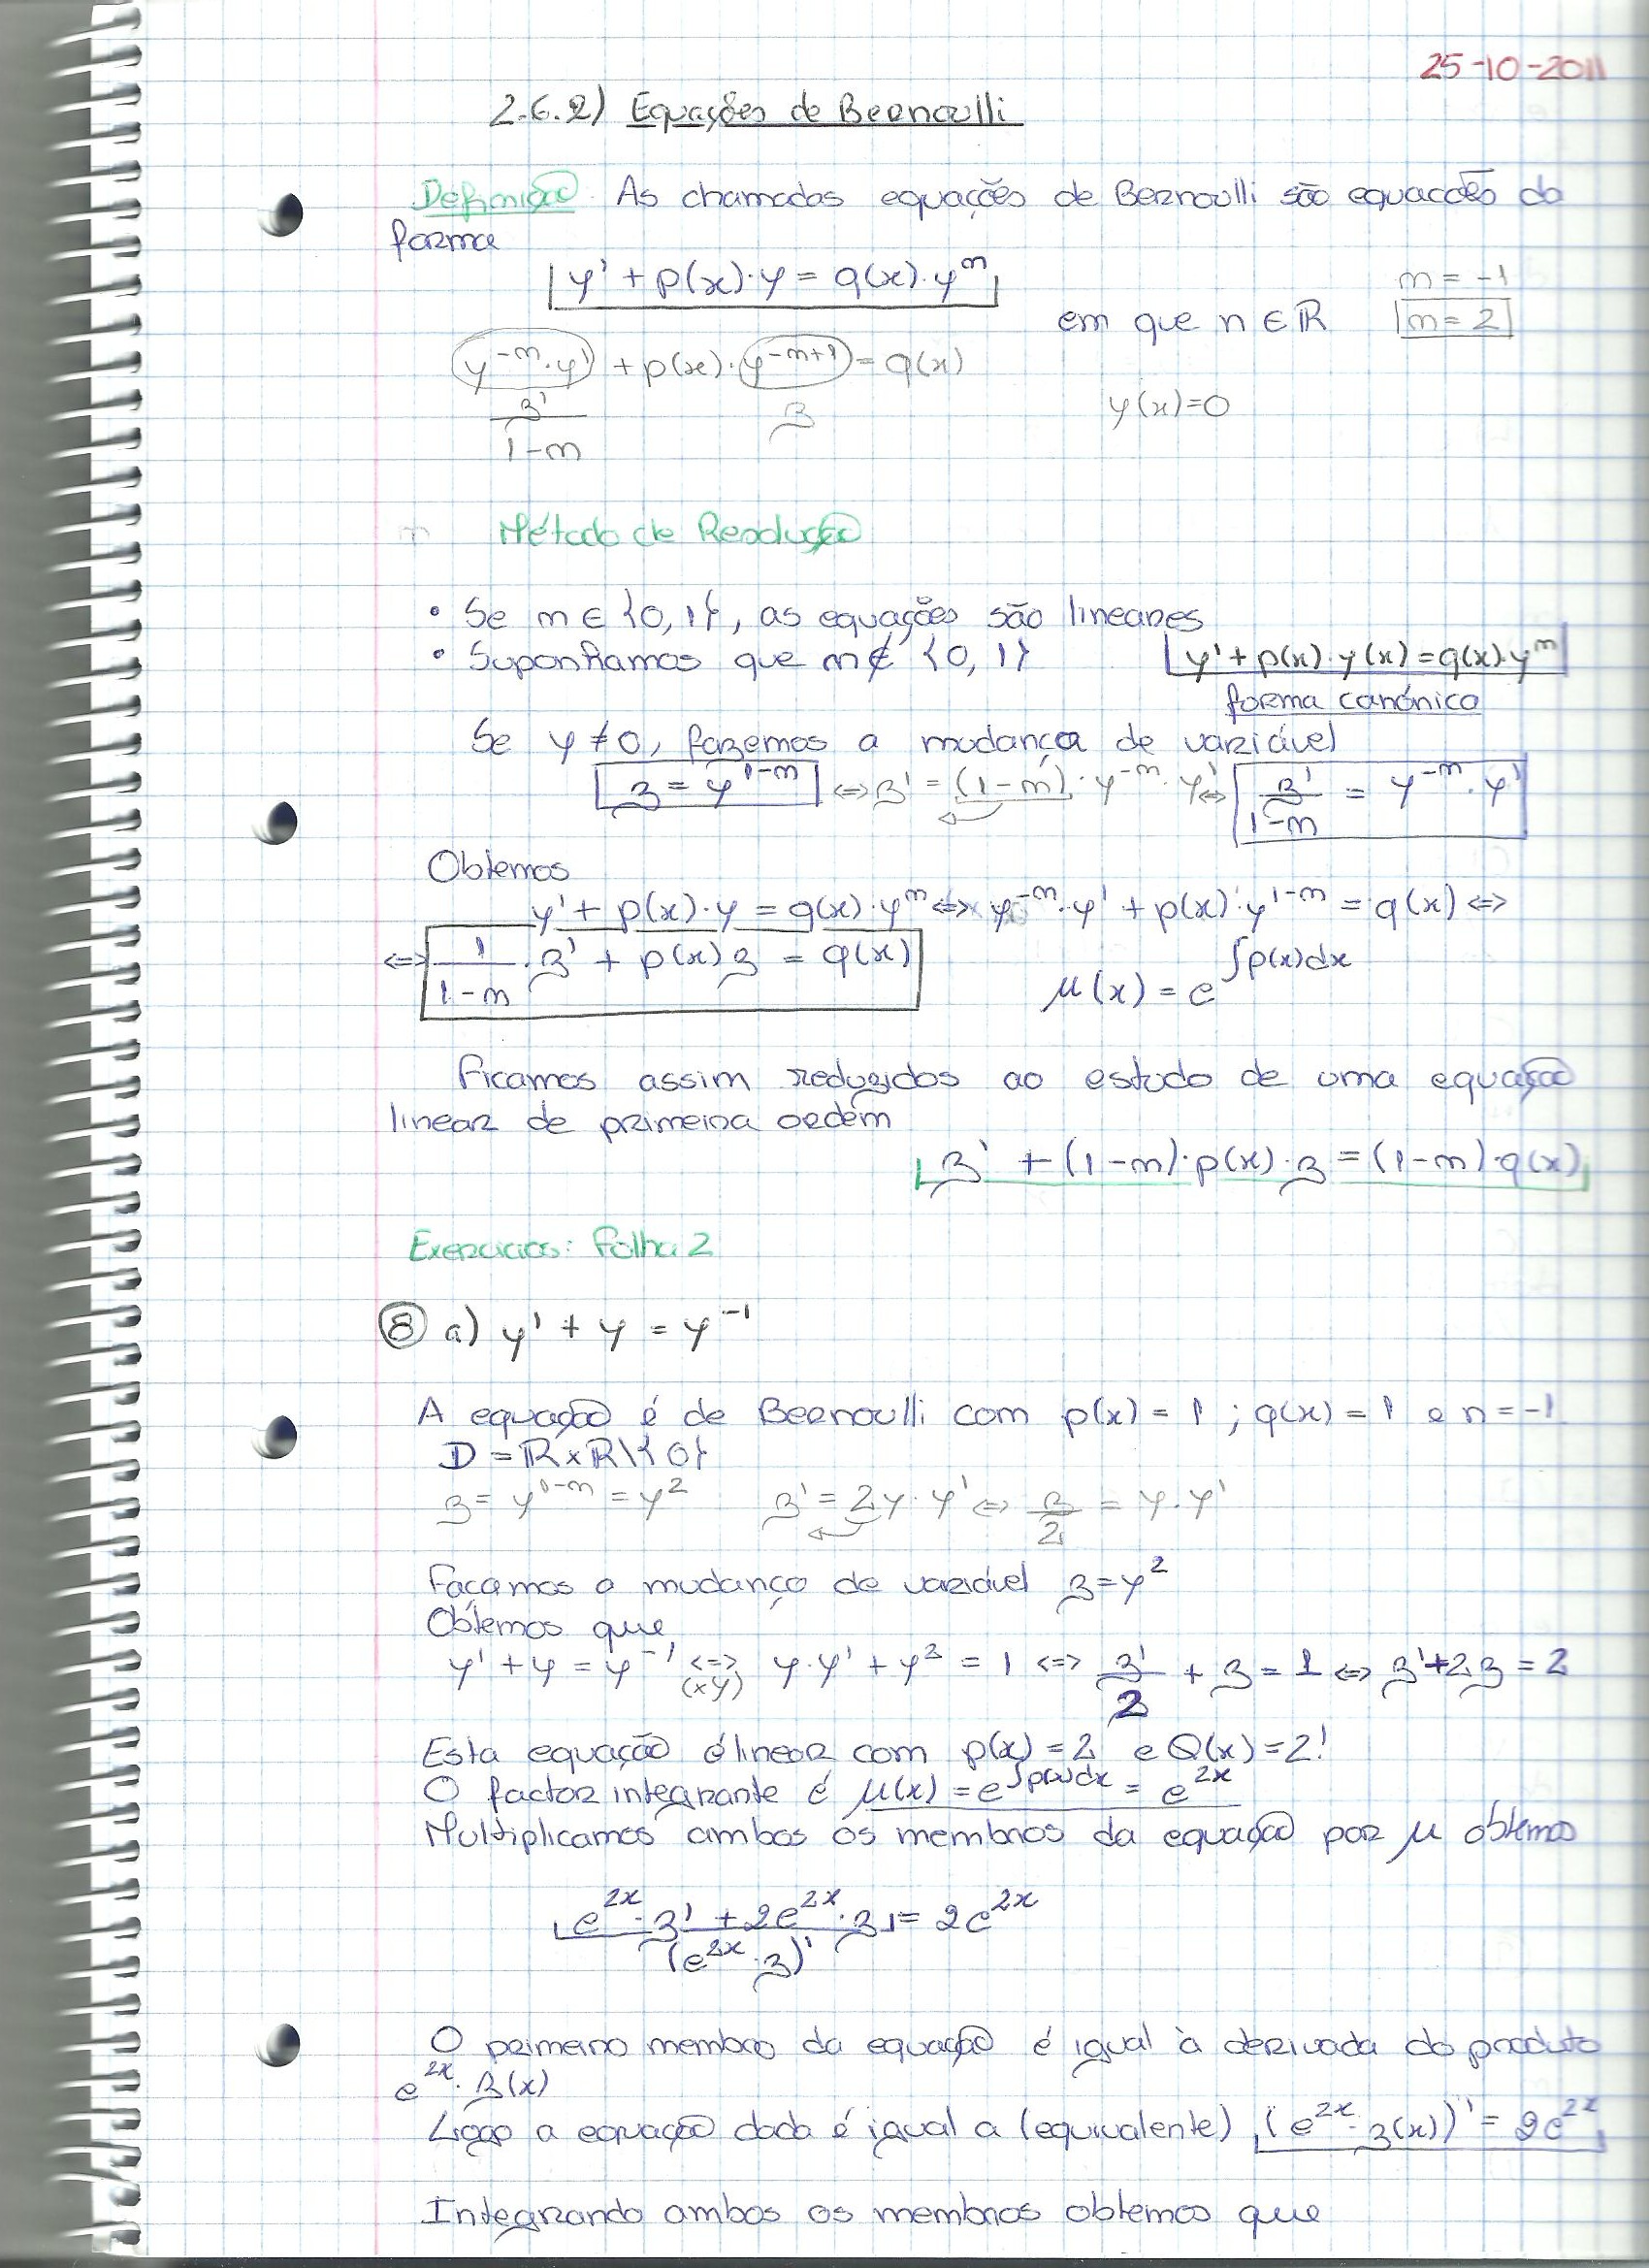 25-10-2011
2.6.2) Equações de Bernoulli
Definição: As chamadas equações de Bernoulli são equações da
forma
y' + p(x)·y = q(x)·y^n
em que n ∈ ℝ
n = -1
n = 2
y^{-n}·y' + p(x)·y^{-n+1} = q(x)
z'/(1-n)    z
y(x)=0
Método de Resolução
• Se n ∈ {0,1}, as equações são lineares
• Suponhamos que n ∉ {0,1}    y' + p(x)·y(x) = q(x)·y^n
forma canónica
Se y ≠ 0, fazemos a mudança de variável
z = y^{1-n} ⇔ z' = (1-n)·y^{-n}·y' ⇔ z'/(1-n) = y^{-n}·y'
Obtemos
y' + p(x)·y = q(x)·y^n ⇔ y^{-n}·y' + p(x)·y^{1-n} = q(x) ⇔
⇔ 1/(1-n)·z' + p(x) z = q(x)    μ(x) = e^{∫p(x)dx}
Ficamos assim reduzidos ao estudo de uma equação
linear de primeira ordem
z' + (1-n)·p(x)·z = (1-n)·q(x)
Exercícios: Folha 2
⑧ a) y' + y = y^{-1}
A equação é de Bernoulli com p(x) = 1 ; q(x) = 1 e n = -1
D = ℝ×ℝ\{0}
z = y^{1-n} = y^2    z' = 2y·y' ⇔ z/2 = y·y'
Façamos a mudança de variável z = y^2
Obtemos que
y' + y = y^{-1} ⇔ (×y) y·y' + y^2 = 1 ⇔ z'/2 + z = 1 ⇔ z' + 2z = 2
Esta equação é linear com p(x) = 2 e Q(x) = 2!
O factor integrante é μ(x) = e^{∫p(x)dx} = e^{2x}
Multiplicamos ambos os membros da equação por μ obtemos
e^{2x}·z' + 2e^{2x}·z = 2e^{2x}
(e^{2x}·z)'
O primeiro membro da equação é igual à derivada do produto
e^{2x}·z(x)
Logo a equação dada é igual a (equivalente) (e^{2x}·z(x))' = 2e^{2x}
Integrando ambos os membros obtemos que